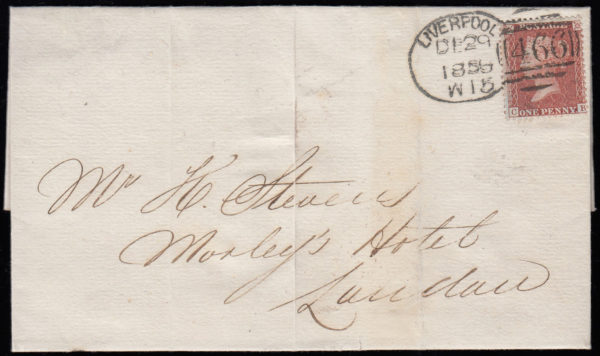 LIVERPOOL
DE 29
1859
W 15
466
POSTAGE
ONE PENNY
C E
Mr H. Stevens
Morley's Hotel
London